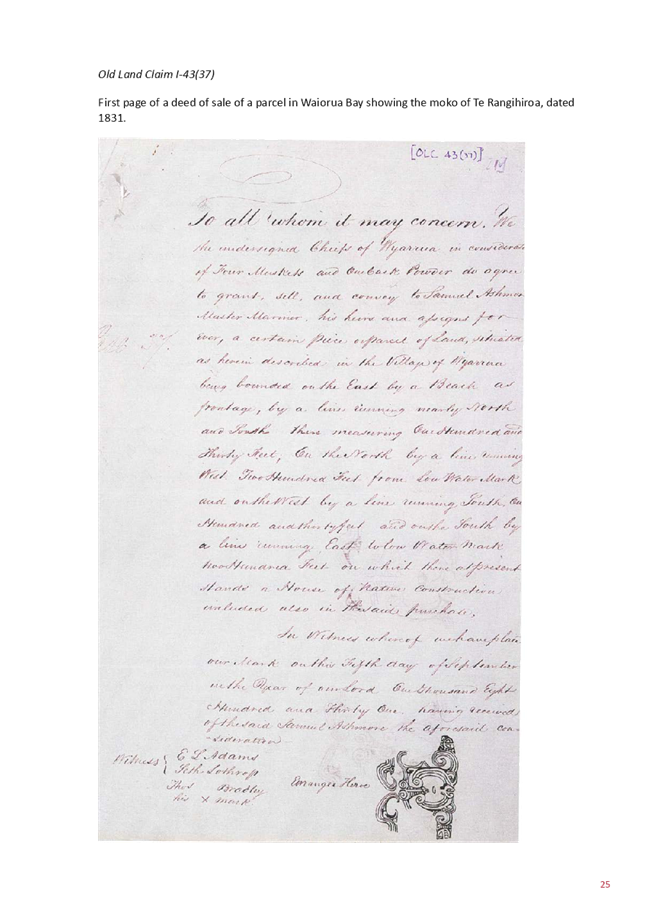 Old Land Claim I-43(37)
First page of a deed of sale of a parcel in Waiorua Bay showing the moko of Te Rangihiroa, dated
1831.
[OLC 43(37)]
To all whom it may concern. We
the undersigned Chiefs of Wyarua in considerat
of Four Muskets and One Cask Powder do agree
to grant, sell, and convey to Samuel Ashmor
Master Marnier, his heirs and assigns for
ever, a certain piece or parcel of Land, situated
as herein described, in the Village of Wyarrua
being bounded on the East by a Beach as
frontage, by a line running nearly North
and South there measuring One Hundred and
Thirty Feet, On the North by a line running
West Two Hundred Feet from Low Water Mark
and on the West by a line running South One
Hundred and thirty feet and on the South by
a line running East to low Water Mark
two Hundred Feet on which there at present
stands a House of Native Construction
included also in the said purchase.
In Witness whereof we have place
our Mark on this Fifth day of September
in the Year of our Lord One thousand Eight
Hundred and Thirty One having received
of the said Samuel Ashmore the aforesaid con
-sideration
Witness { E L Adams
Seth Lothrop
Thos Bradley
his X mark
Emranga Heroe
25